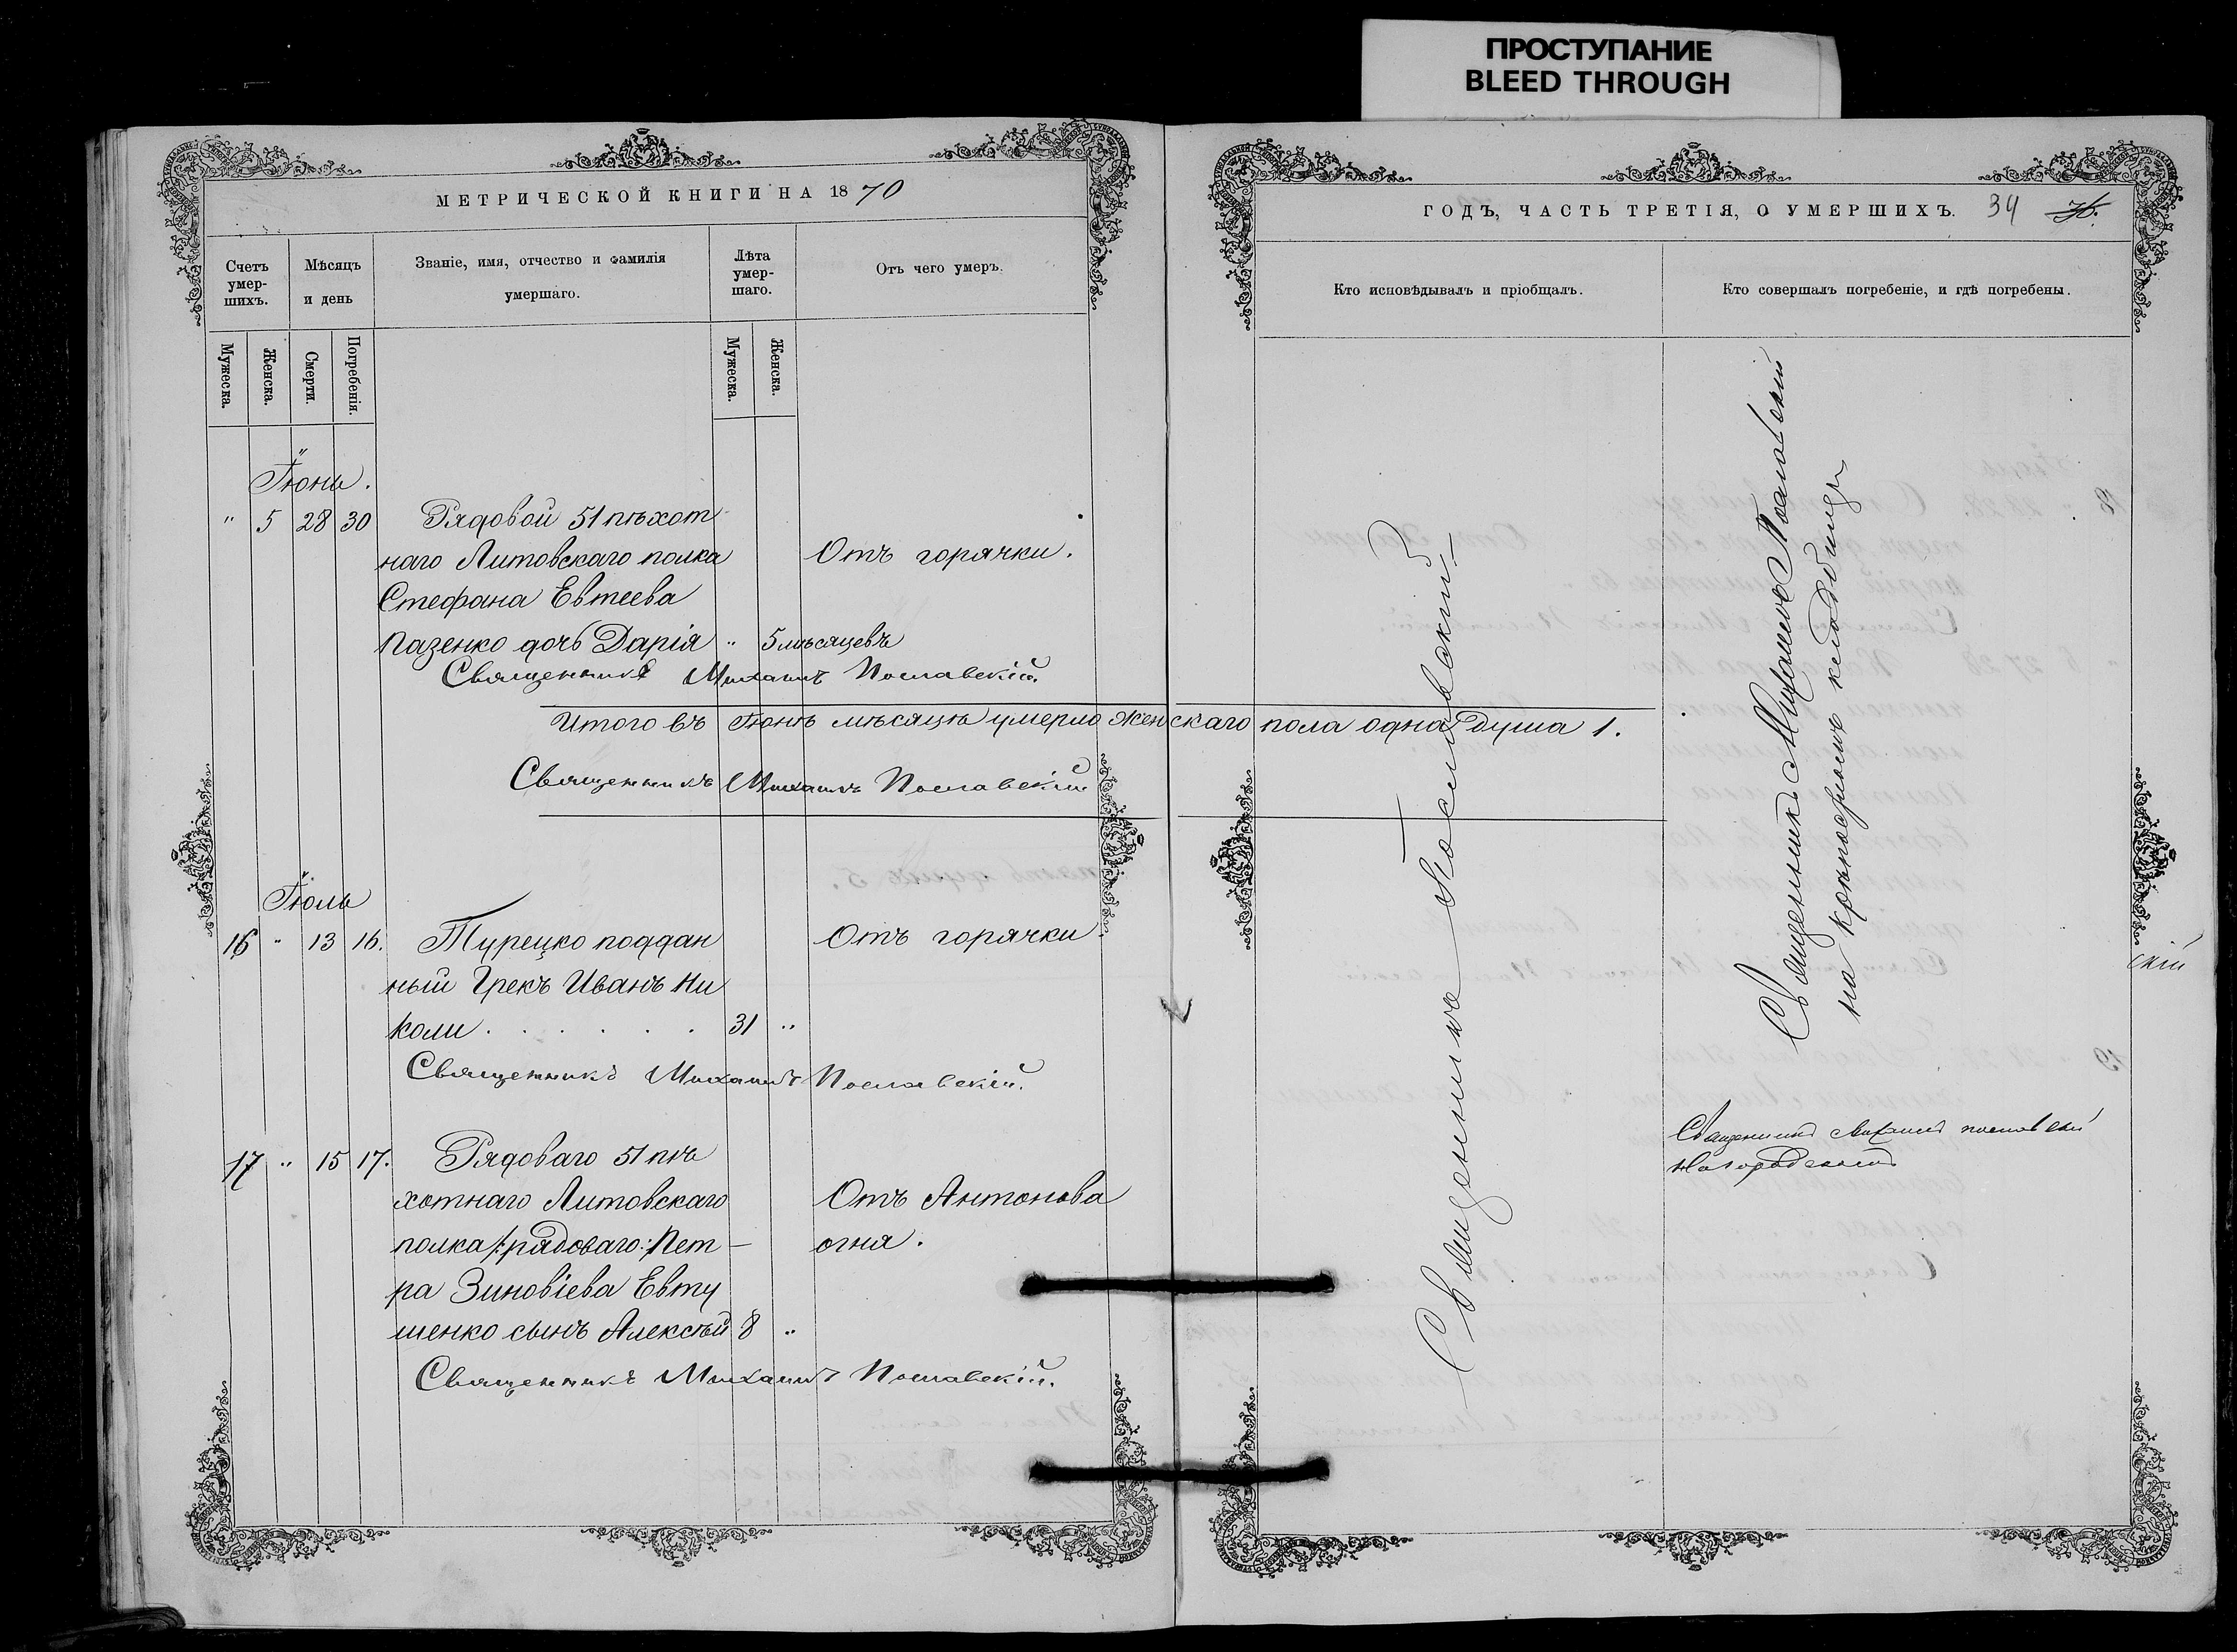 ПРОСТУПАНИЕ
BLEED THROUGH
МЕТРИЧЕСКОЙ КНИГИ НА 1870
Счетъ умер-шихъ.
Мѣсяцъ и день
Званіе, имя, отчество и фамилія
умершаго.
Лѣта умер-шаго.
Отъ чего умеръ.
Мужеска.
Женска.
Смерти.
Погребенія.
Мужеска.
Женска.
Іюнь.
" 5 28 30 Рядовой 51 пѣхот
наго Литовскаго полка Отъ горячки.
Стефана Евтеева
Пазенко дочь Дарія " 5 мѣсяцевъ
Священникъ Михаилъ Пославскій.
Итого въ Іюнѣ мѣсяцѣ умерло женскаго пола одна душа 1.
Священникъ Михаилъ Пославскій
Іюль
16 " 13 16. Турецко поддан Отъ горячки
ный Грекъ Иванъ Ни
коли . . . . . . 31 "
Священникъ Михаилъ Пославскій.
17 " 15 17. Рядоваго 51 пѣ
хотнаго Литовскаго Отъ Антонова
полка /:рядоваго:/ Пет– огня.
ра Зиновіева Евту
шенко сынъ Алексѣй 8 "
Священникъ Михаилъ Пославскій.
ГОДЪ, ЧАСТЬ ТРЕТІЯ, О УМЕРШИХЪ. 34
Кто исповѣдывалъ и пріобщалъ.
Кто совершалъ погребеніе, и гдѣ погребены.
Священникъ Пославскій
Священникъ Михаилъ Пославскій
на кладбищѣ
Священникъ Михаилъ Пославскій
скій